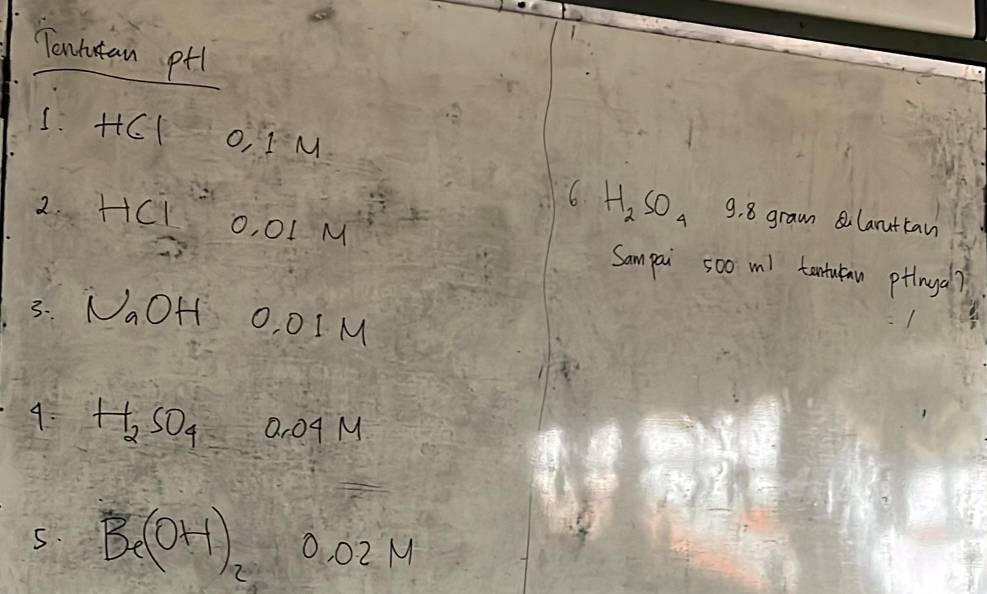 Tentukan pH
1. HCl 0,1 M
2. HCl 0,01 M
3. NaOH 0,01 M
4. H₂SO₄ 0,04 M
5. Be(OH)₂ 0,02 M
6. H₂SO₄ 9,8 gram dilarutkan
Sampai 500 ml tentukan pHnya?